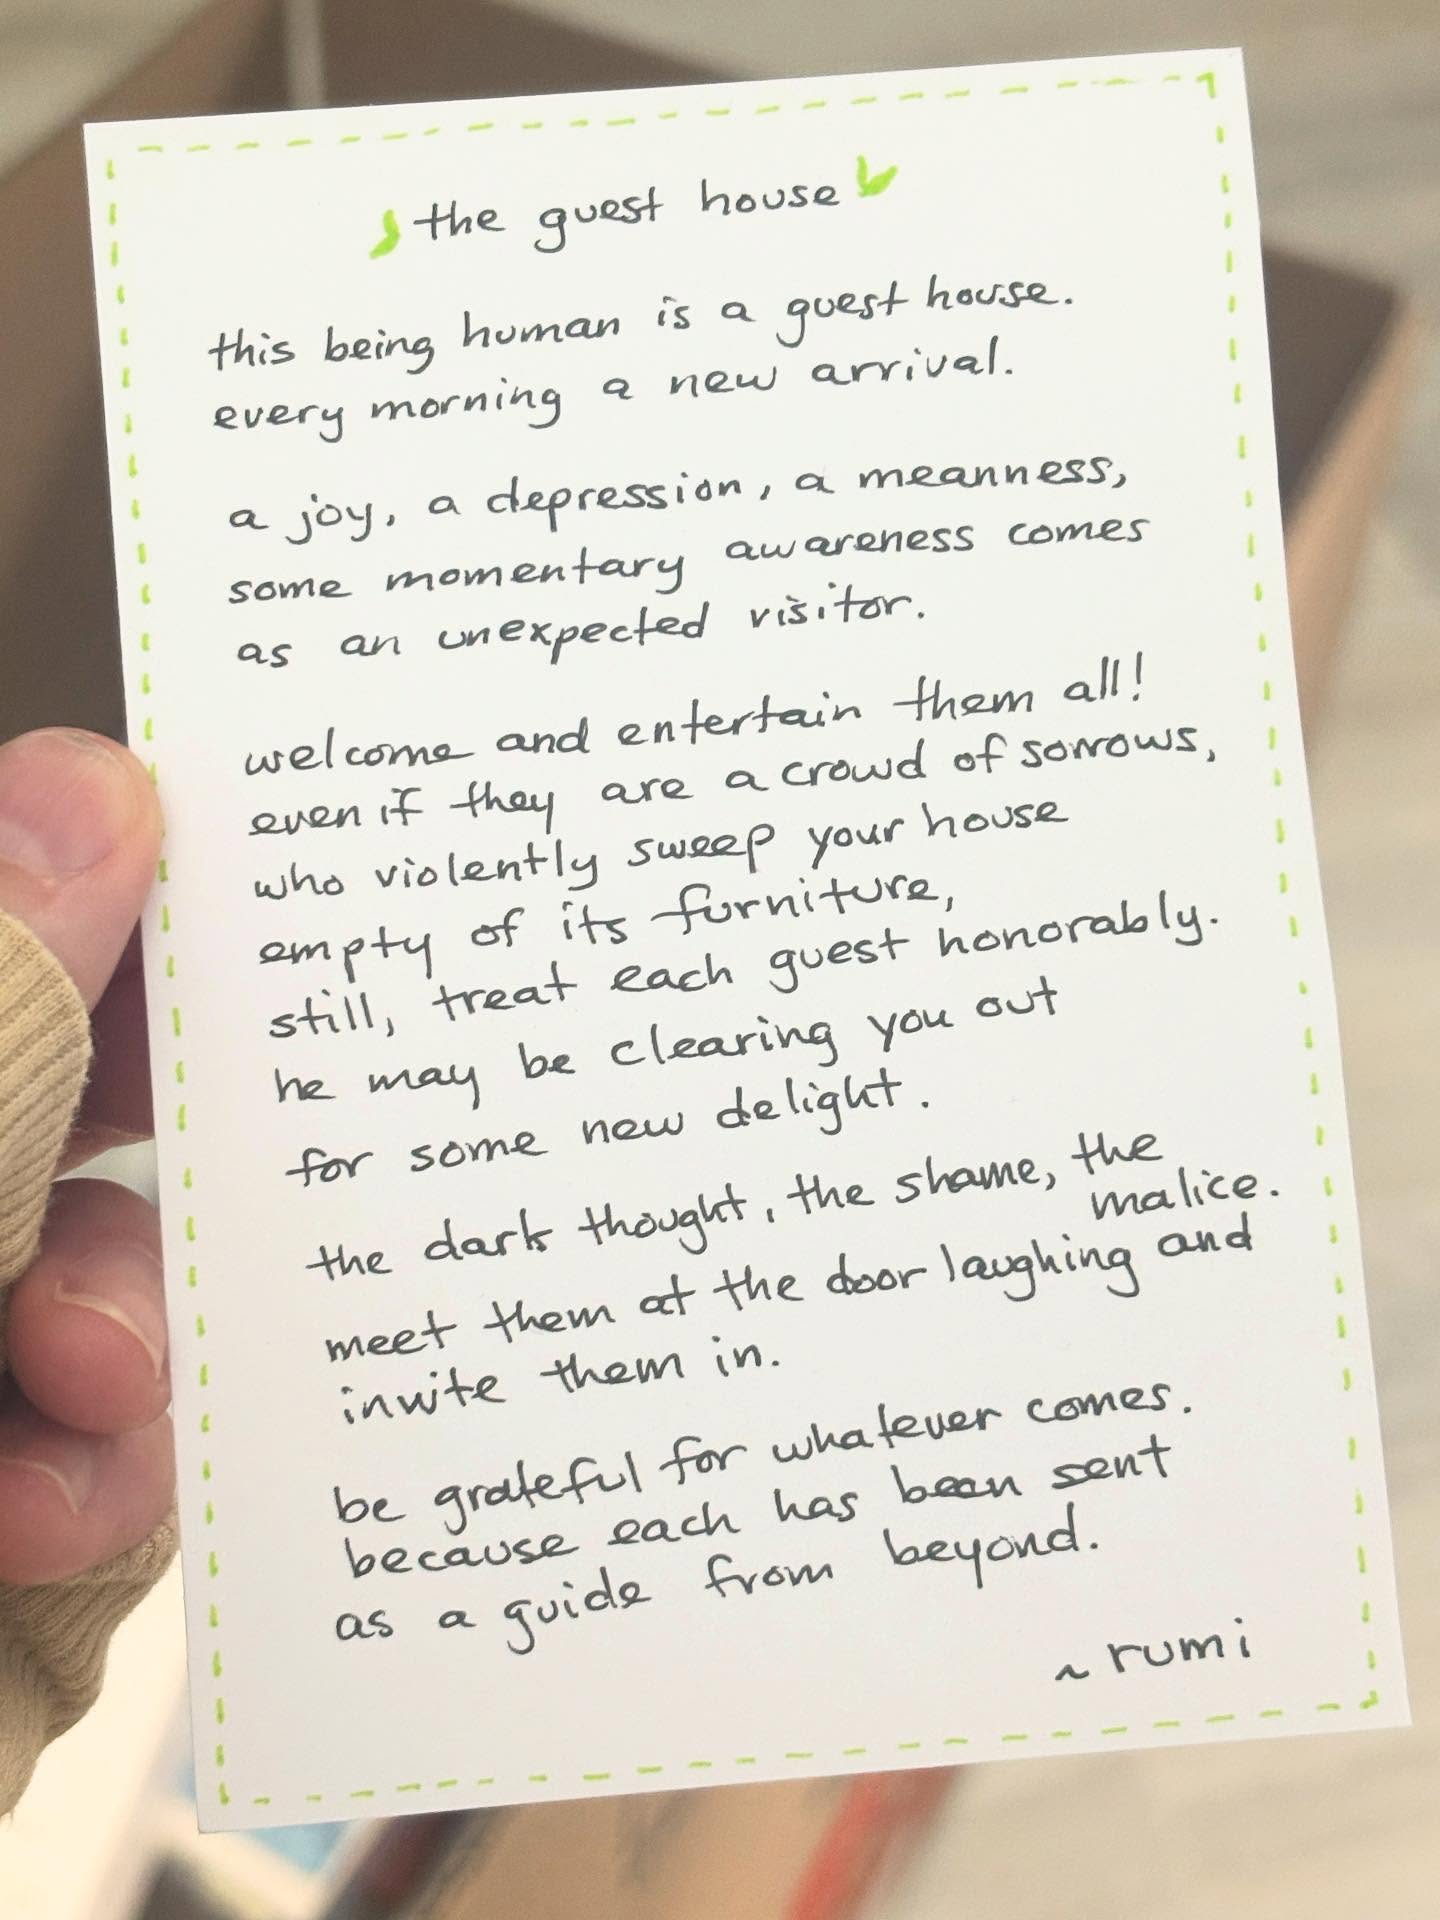 the guest house
this being human is a guest house.
every morning a new arrival.
a joy, a depression, a meanness,
some momentary awareness comes
as an unexpected visitor.
welcome and entertain them all!
even if they are a crowd of sorrows,
who violently sweep your house
empty of its furniture,
still, treat each guest honorably.
he may be clearing you out
for some new delight.
the dark thought, the shame, the
malice.
meet them at the door laughing and
invite them in.
be grateful for whatever comes.
because each has been sent
as a guide from beyond.
~ rumi